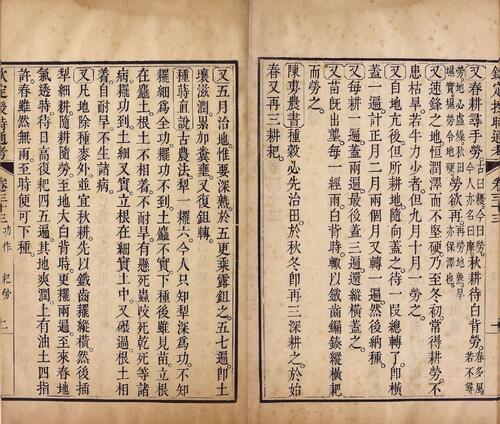 欽定授時通考 三十三
又春耕尋手勞。古曰耰今曰勞。秋耕待白背勞。春既多風若不尋
勞欲再。
又速鋒之地恒潤澤而不堅硬乃至冬初常得耕勞不
患枯旱若牛力少者但九月十月一勞之。
又自地亢後但所耕地隨向蓋之待一段總轉了。即橫
蓋一遍計正月二月兩個月又轉一遍。然後納種。
又每耕一遍蓋兩遍最後蓋三遍還縱橫蓋之。
又苗既出壟每一經雨白背時輒以鐵齒𨫒楱縱橫耙
而勞之。
陳旉農書種穀必先治田於秋冬即再三深耕之於始
春又再三耕耙。
又五月治地。惟要深熟於五更乘露鉏之。五七遍即土
壤滋潤。累加糞壅又復鉏轉。
種蒔直說古農法犁一擺六今人只知犁深爲功。不知
擺細爲全功。擺功不到土麤不實下種後雖見苗立根
在麤土根土不相着不耐旱有懸死蟲咬死乾死等諸
病。擺功到土細又實立根在細實土中。又碾過根土相
着自耐旱不生諸病。
又凡地除種麥外並宜秋耕先以鐵齒擺縱橫然後插
犁細耕隨耕隨勞至地大白背時更擺兩遍至來春地
氣透時待日高復耙四五遍其地爽潤上有油土四指
許春雖然無雨至時便可下種。
欽定授時通考 卷三十三 功作 耙勞 二